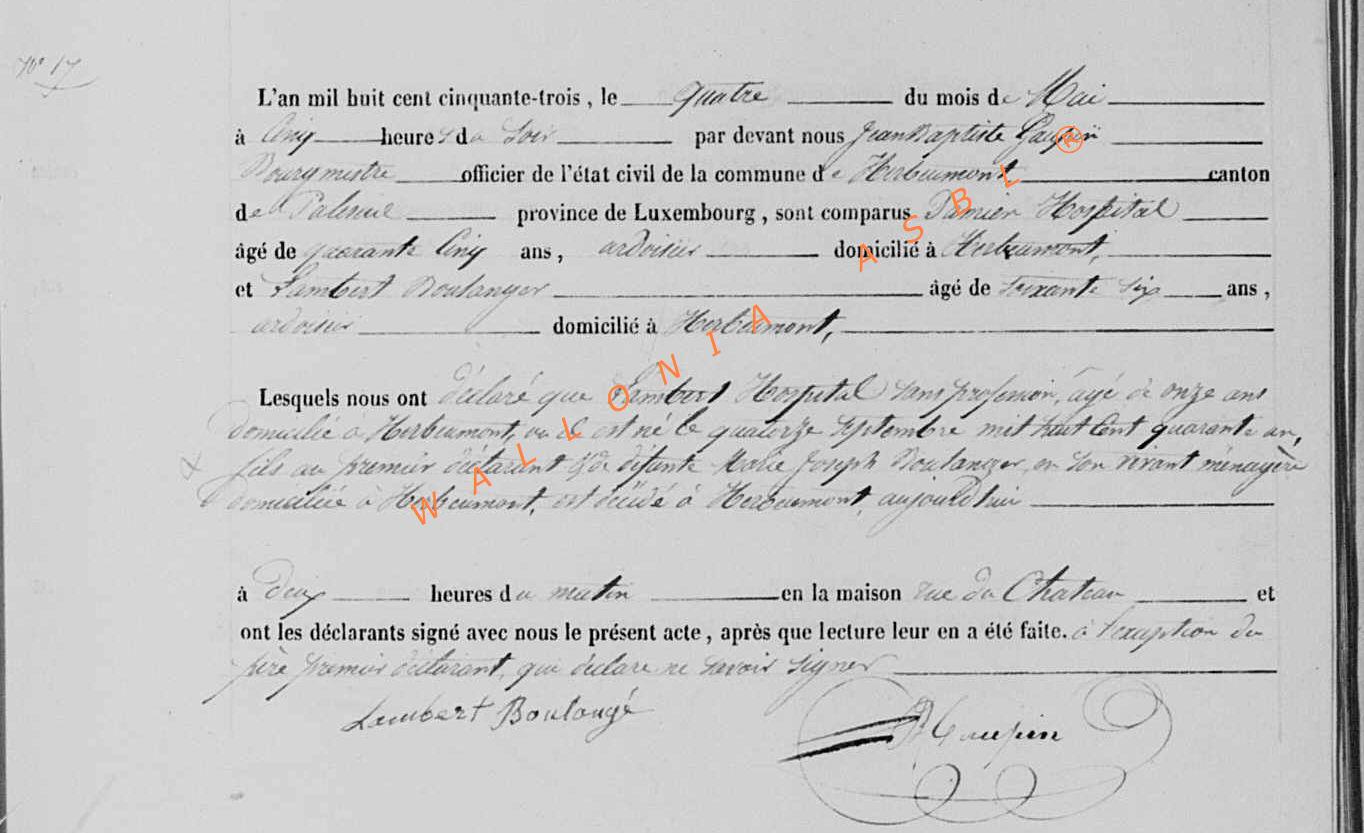 N° 17
L'an mil huit cent cinquante-trois, le quatre du mois de Mai
à Cinq heures du Soir par devant nous Jean Baptiste
Bourgmestre officier de l'état civil de la commune de Herbeumont canton
de Paliseul province de Luxembourg, sont comparus Damien Hospital
âgé de quarante Cinq ans, ardoisier domicilié à Herbeumont,
et Lambert Boulanger âgé de soixante six ans,
ardoisier domicilié à Herbeumont,
Lesquels nous ont déclaré que Lambert Hospital sans profession, âgé de onze ans
domicilié à Herbeumont, où il est né le quatorze Septembre mil huit Cent quarante un,
fils au premier déclarant & de défunte Marie Joseph Boulanger, en son vivant ménagère
domiciliée à Herbeumont, est décédé à Herbeumont, aujourd'hui
à deux heures du matin en la maison rue du Chateau et
ont les déclarants signé avec nous le présent acte, après que lecture leur en a été faite. à l'exception du
père premier déclarant, qui déclare ne savoir signer
Lambert Boulangé
WALLONIA ASBL ®